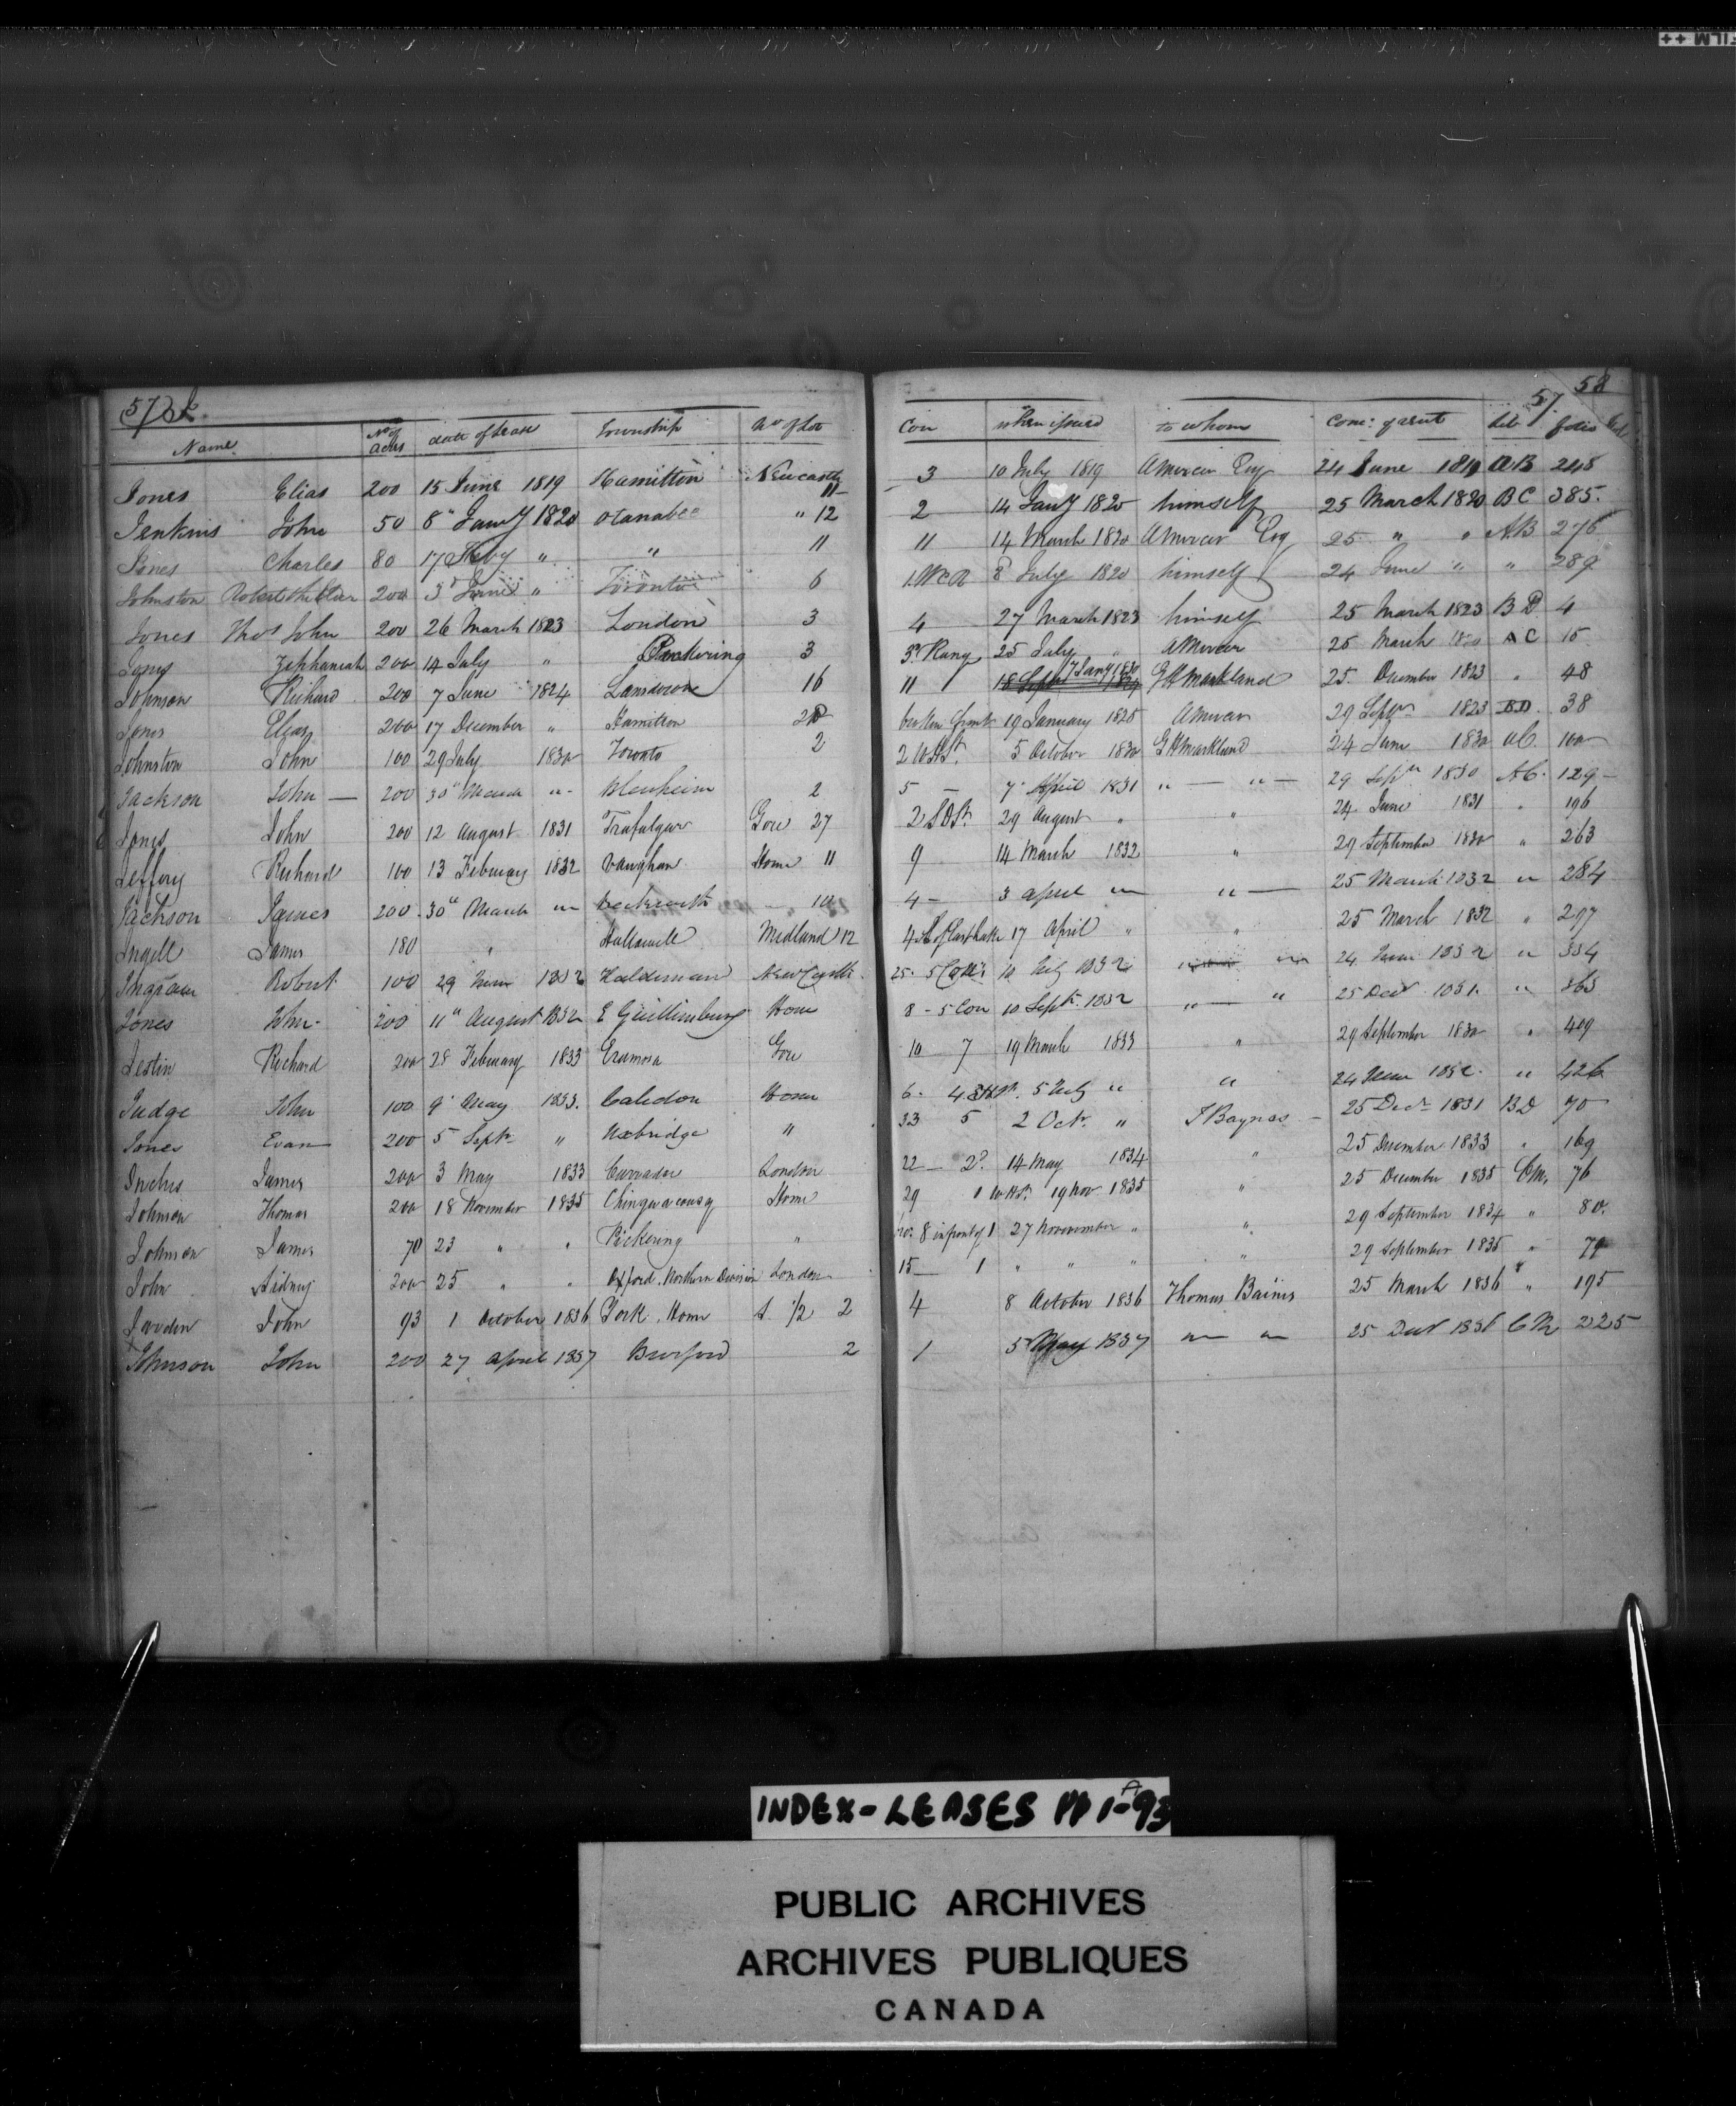 57 58
57
Name No of acres date of Lease Township No of Lot Con when issued to whom Come: of rent Lib folio
Jones Elias 200 15 June 1819 Hamilton Newcastle 11 3 10 July 1819 A Mercer Esq 24 June 1819 AB 248
Jenkins John 50 8" Jany 1820 Otanabee " 12 2 14 Jany 1820 himself 25 March 1820 BC 385.
Jones Charles 80 17 Feby " " 11 11 14 March 1820 A Mercer Esq 25 " " AB 276
Johnston Robert the Elder 200 3d June " Toronto 6 1 WCR 8 July 1820 himself 24 June " " 289
Jones Thos John 200 26 March 1823 London 3 4 27 March 1823 himself 25 March 1823 BD 4
Jones Zephaniah 200 14 July " Pickering 3 3d Range 25 July " A Mercer 25 March AC 15
Johnson Richard 200 7 June 1824 Lansdowne 16 11 7 Jany 1830 G H Markland 25 December 1823 " 48
Jones Elias 200 17 December " Hamilton broken front 19 January 1825 A Mercer 29 Septr 1823 BD 38
Johnston John 100 29 July 1830 Toronto 2 2 WHSt. 5 October 1830 G H Markland 24 June 1830 AC. 100
Jackson John — 200 30" March " - Blenheim 2 5 — 7 April 1831 " — " — 29 Septr 1830 AC. 129 -
Jones John 200 12 August 1831 Trafalgar Gore 27 2 S DSt. 29 August " " 24 June 1831 " 196
Jeffery Richard 100 13 February 1832 Vaughan Home 11 9 14 March 1832 " 29 September 1830 " 263
Jackson James 200 30" March " Beckwith — 10 4 - 3 April " " — 25 March 1832 " 284
Ingell James 180 " Hallowell Midland 12 4 17 April " " 25 March 1832 " 297
Ingram Robert 100 29 June 1832 Haldimand NewCastle. 25. 5 Con: 10 July 1832 " " 24 June 1832 " 334
Jones John - 200 11" August 1832 E Gwillimbury Home 8 - 5 Con 10 Sept 1832 " — " 25 Decr 1831. " 363
Jestin Richard 200 28 February 1833 Eramosa Gore 10 7 19 March 1833 " 29 September 1830 " 409
Judge John 100 9 May 1833. Caledon Home 6. 4 EHSt. 5 July " " 24 June 1832. " 426
Jones Evan 200 5 Sept " Uxbridge " 33 5 2 Oct. " T Baynes - 25 Decr 1831 BD 70
James 200 3 May 1833 London 22 — 2d. 14 May 1834 " 25 December 1833 " 169
Johnson Thomas 200 18 November 1835 Chinguacousy Home 29 1 WHSt. 19 Nov 1835 " 25 December 1835 CM, 76
Johnson James 70 23 " " Pickering " No. 8 in front of 1 27 November " " 29 September 1834 " 80.
John Sidney 200 25 " " Oxford, Northern Division London 15 — 1 " " " " 29 September 1835 " 79
John 93 1 October 1836 York, Home S. 1/2 2 4 8 October 1836 Thomas Baines 25 March 1836 " 195
Johnson John 200 27 April 1837 Burford 2 1 5 May 1837 " " 25 Decr 1836 CM 225
INDEX - LEASES PP 1-93A
PUBLIC ARCHIVES
ARCHIVES PUBLIQUES
CANADA